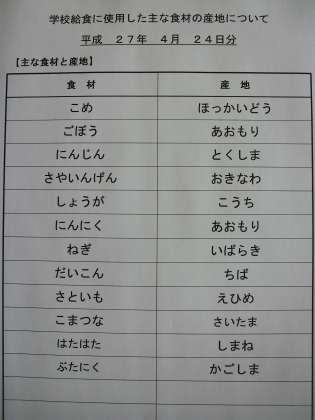 学校給食に使用した主な食材の産地について
平成 27年 4月 24日分
【主な食材と産地】
食 材 産 地
こめ ほっかいどう
ごぼう あおもり
にんじん とくしま
さやいんげん おきなわ
しょうが こうち
にんにく あおもり
ねぎ いばらき
だいこん ちば
さといも えひめ
こまつな さいたま
はたはた しまね
ぶたにく かごしま